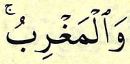 وَالْمَغْرِبُ ۚ